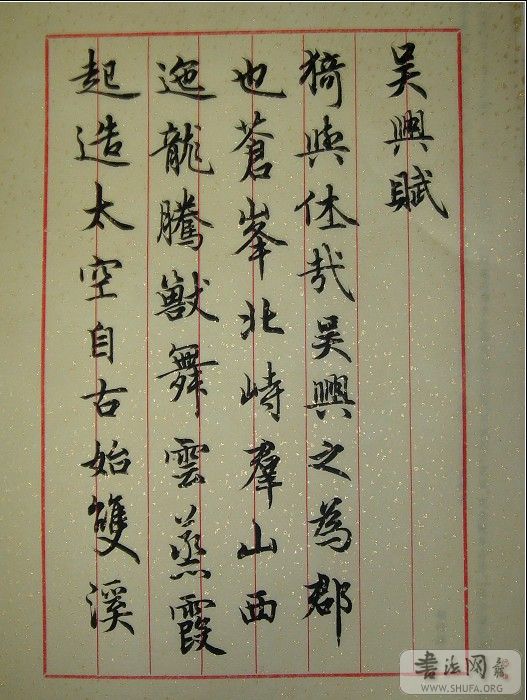 吴興賦
猗與休哉吴興之為郡
也蒼峯北峙羣山西
迤龍騰獸舞雲蒸霞
起造太空自古始雙溪
書法网
WWW.SHUFA.ORG